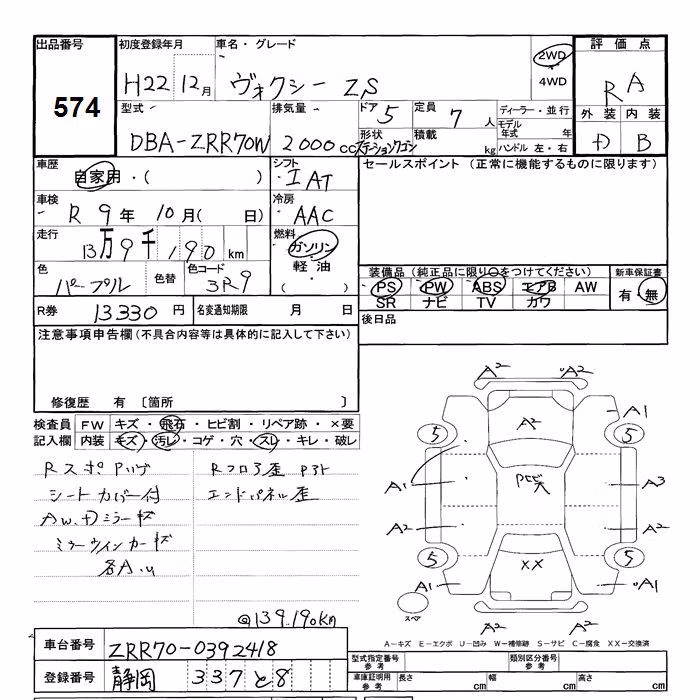 出品番号
574
初度登録年月
H22 12月
車名・グレード
ヴォクシー ZS
2WD
4WD
評価点
RA
型式
DBA-ZRR70W
排気量
2000cc
ドア 5
定員 7人
形状 ステーションワゴン
積載 kg
ディーラー・並行
モデル年式 年
ハンドル 左・右
外装 内装
D B
車歴
自家用・( )
シフト
IAT
セールスポイント (正常に機能するものに限ります)
車検
R 9年 10月( 日)
冷房
AAC
走行
13万9千190km
燃料
ガソリン
軽油
( )
色
パープル
色替
色コード
3R9
装備品 (純正品に限り○をつけてください)
新車保証書
PS PW ABS エアB AW
SR ナビ TV カワ
有・無
R券 13330円
名変通知期限 月 日
後日品
注意事項申告欄 (不具合内容等は具体的に記入して下さい)
修復歴 有 〔箇所 〕
検査員記入欄
FW キズ・飛石・ヒビ割・リペア跡・×要
内装 キズ・汚レ・コゲ・穴・スレ・キレ・破レ
シートカバー付
ミラーウインカーキズ
各A.U
Rフロア歪
エンドパネル歪
@139.190km
A2 A2
A1
A2
5 5
A1 A3
A2 A2
5 5
XX
A1 A1
A2 A2
スペア
A-キズ E-エクボ U-凹み W-補修跡 S-サビ C-腐食 XX-交換済
車台番号 ZRR70-0392418
登録番号 静岡 337 と 8
型式指定番号 参考
類別区分番号 参考
車庫証明用 参考
長さ cm
幅 cm
高さ cm